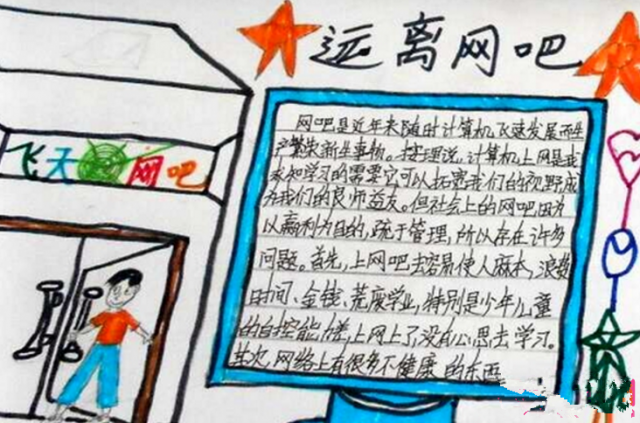 远离网吧
飞天网吧
网吧是近年来随时计算机飞速发展而生
产繁衍新生事物。按理说，计算机上网是我
求知学习的需要它可以拓宽我们的视野成
为我们的良师益友。但社会上的网吧因为
以赢利为目的，疏于管理，所以存在许多
问题。首先，上网吧去容易使人麻木，浪费
时间、金钱、荒废学业，特别是少年儿童
的自控能力差，上网上了没有心思去学习。
其次，网络上有很多不健康的东西